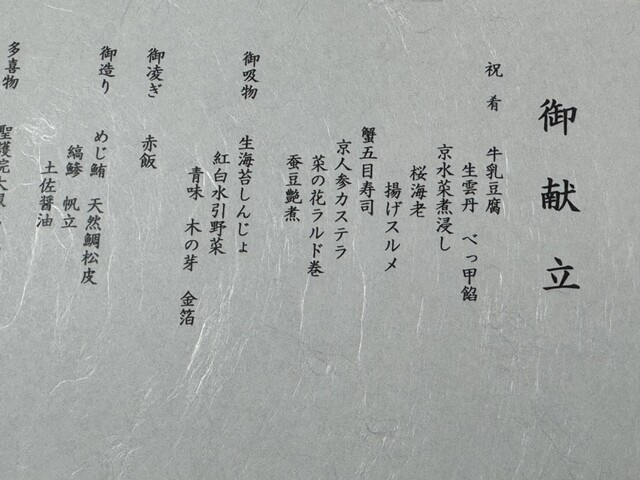 御献立
祝肴 牛乳豆腐
生雲丹 べっ甲餡
京水菜煮浸し
桜海老
揚げスルメ
蟹五目寿司
京人参カステラ
菜の花ラルド巻
蚕豆艶煮
御吸物 生海苔しんじょ
紅白水引野菜
青味 木の芽 金箔
御凌ぎ 赤飯
御造り めじ鮪 天然鯛松皮
縞鯵 帆立
土佐醤油
多喜物 聖護院大根